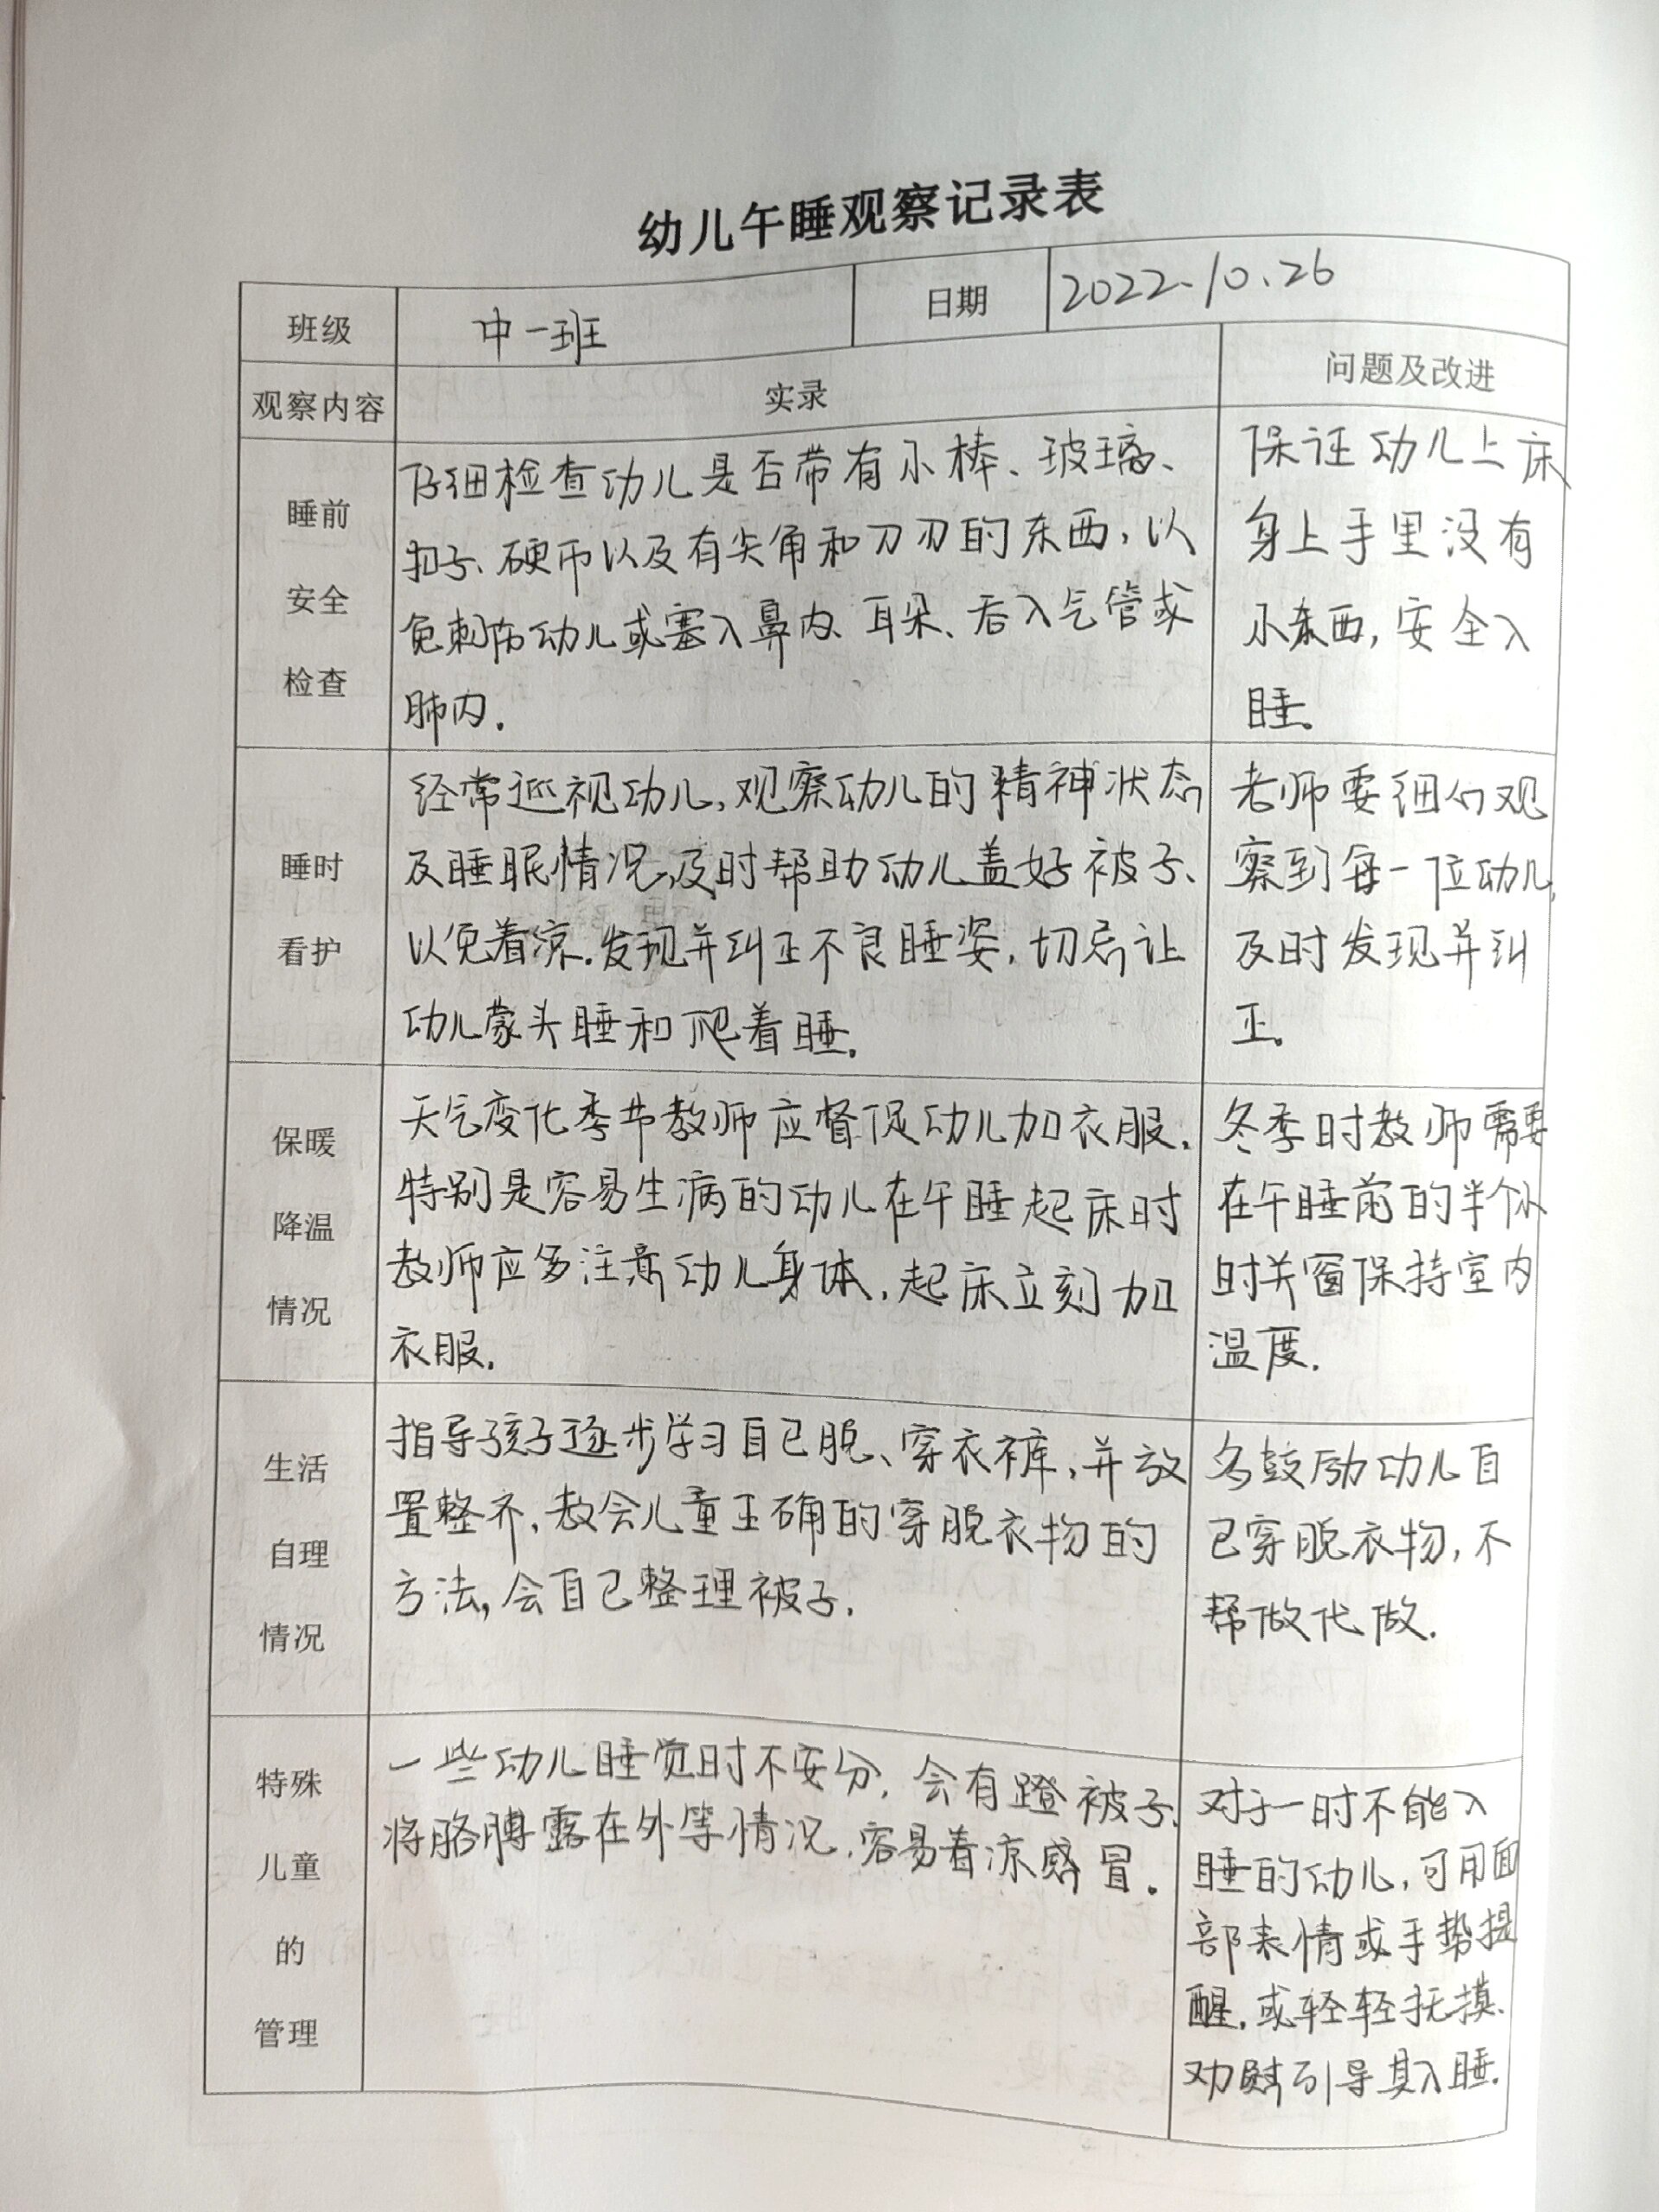 幼儿午睡观察记录表
班级 中一班 日期 2022.10.26
观察内容 实录 问题及改进
睡前
安全
检查
仔细检查幼儿是否带有小棒、玻璃、
扣子、硬币以及有尖角和刀刃的东西,以
免刺伤幼儿或塞入鼻内、耳朵、吞入气管或
肺内.
保证幼儿上床
身上手里没有
小东西,安全入
睡。
睡时
看护
经常巡视幼儿,观察幼儿的精神状态
及睡眠情况,及时帮助幼儿盖好被子、
以免着凉.发现并纠正不良睡姿,切忌让
幼儿蒙头睡和爬着睡.
老师要细心观
察到每一位幼儿,
及时发现并纠
正。
保暖
降温
情况
天气变化季节教师应督促幼儿加衣服.
特别是容易生病的幼儿在午睡起床时
教师应多注意幼儿身体,起床立刻加
衣服.
冬季时教师需要
在午睡前的半个小
时关窗保持室内
温度.
生活
自理
情况
指导孩子逐步学习自己脱、穿衣裤,并放
置整齐,教会儿童正确的穿脱衣物的
方法,会自己整理被子.
多鼓励幼儿自
己穿脱衣物,不
帮做代做.
特殊
儿童
的
管理
一些幼儿睡觉时不安分,会有蹬被子,
将胳膊露在外等情况,容易着凉感冒.
对于一时不能入
睡的幼儿,可用面
部表情或手势提
醒,或轻轻抚摸、
劝慰引导其入睡.